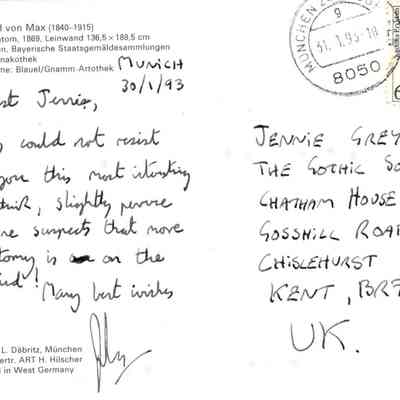 l von Max (1840-1915)
tom, 1869, Leinwand 136,5 × 189,5 cm
en, Bayerische Staatsgemäldesammlungen
nakothek
me: Blauel/Gnamm-Artothek
MUNICH
30/1/93
est Jennie,
could not resist
you this most interesting
slightly perverse
one suspects that more
tomy is on the
ied! Many best wishes
L. Döbritz, München
ertr. ART H. Hilscher
in West Germany
MÜNCHEN
9
31.1.93-18
8050
JENNIE GREY
THE GOTHIC SO
CHATHAM HOUSE
GOSSHILL ROAD
CHISLEHURST
KENT, BR7
UK.